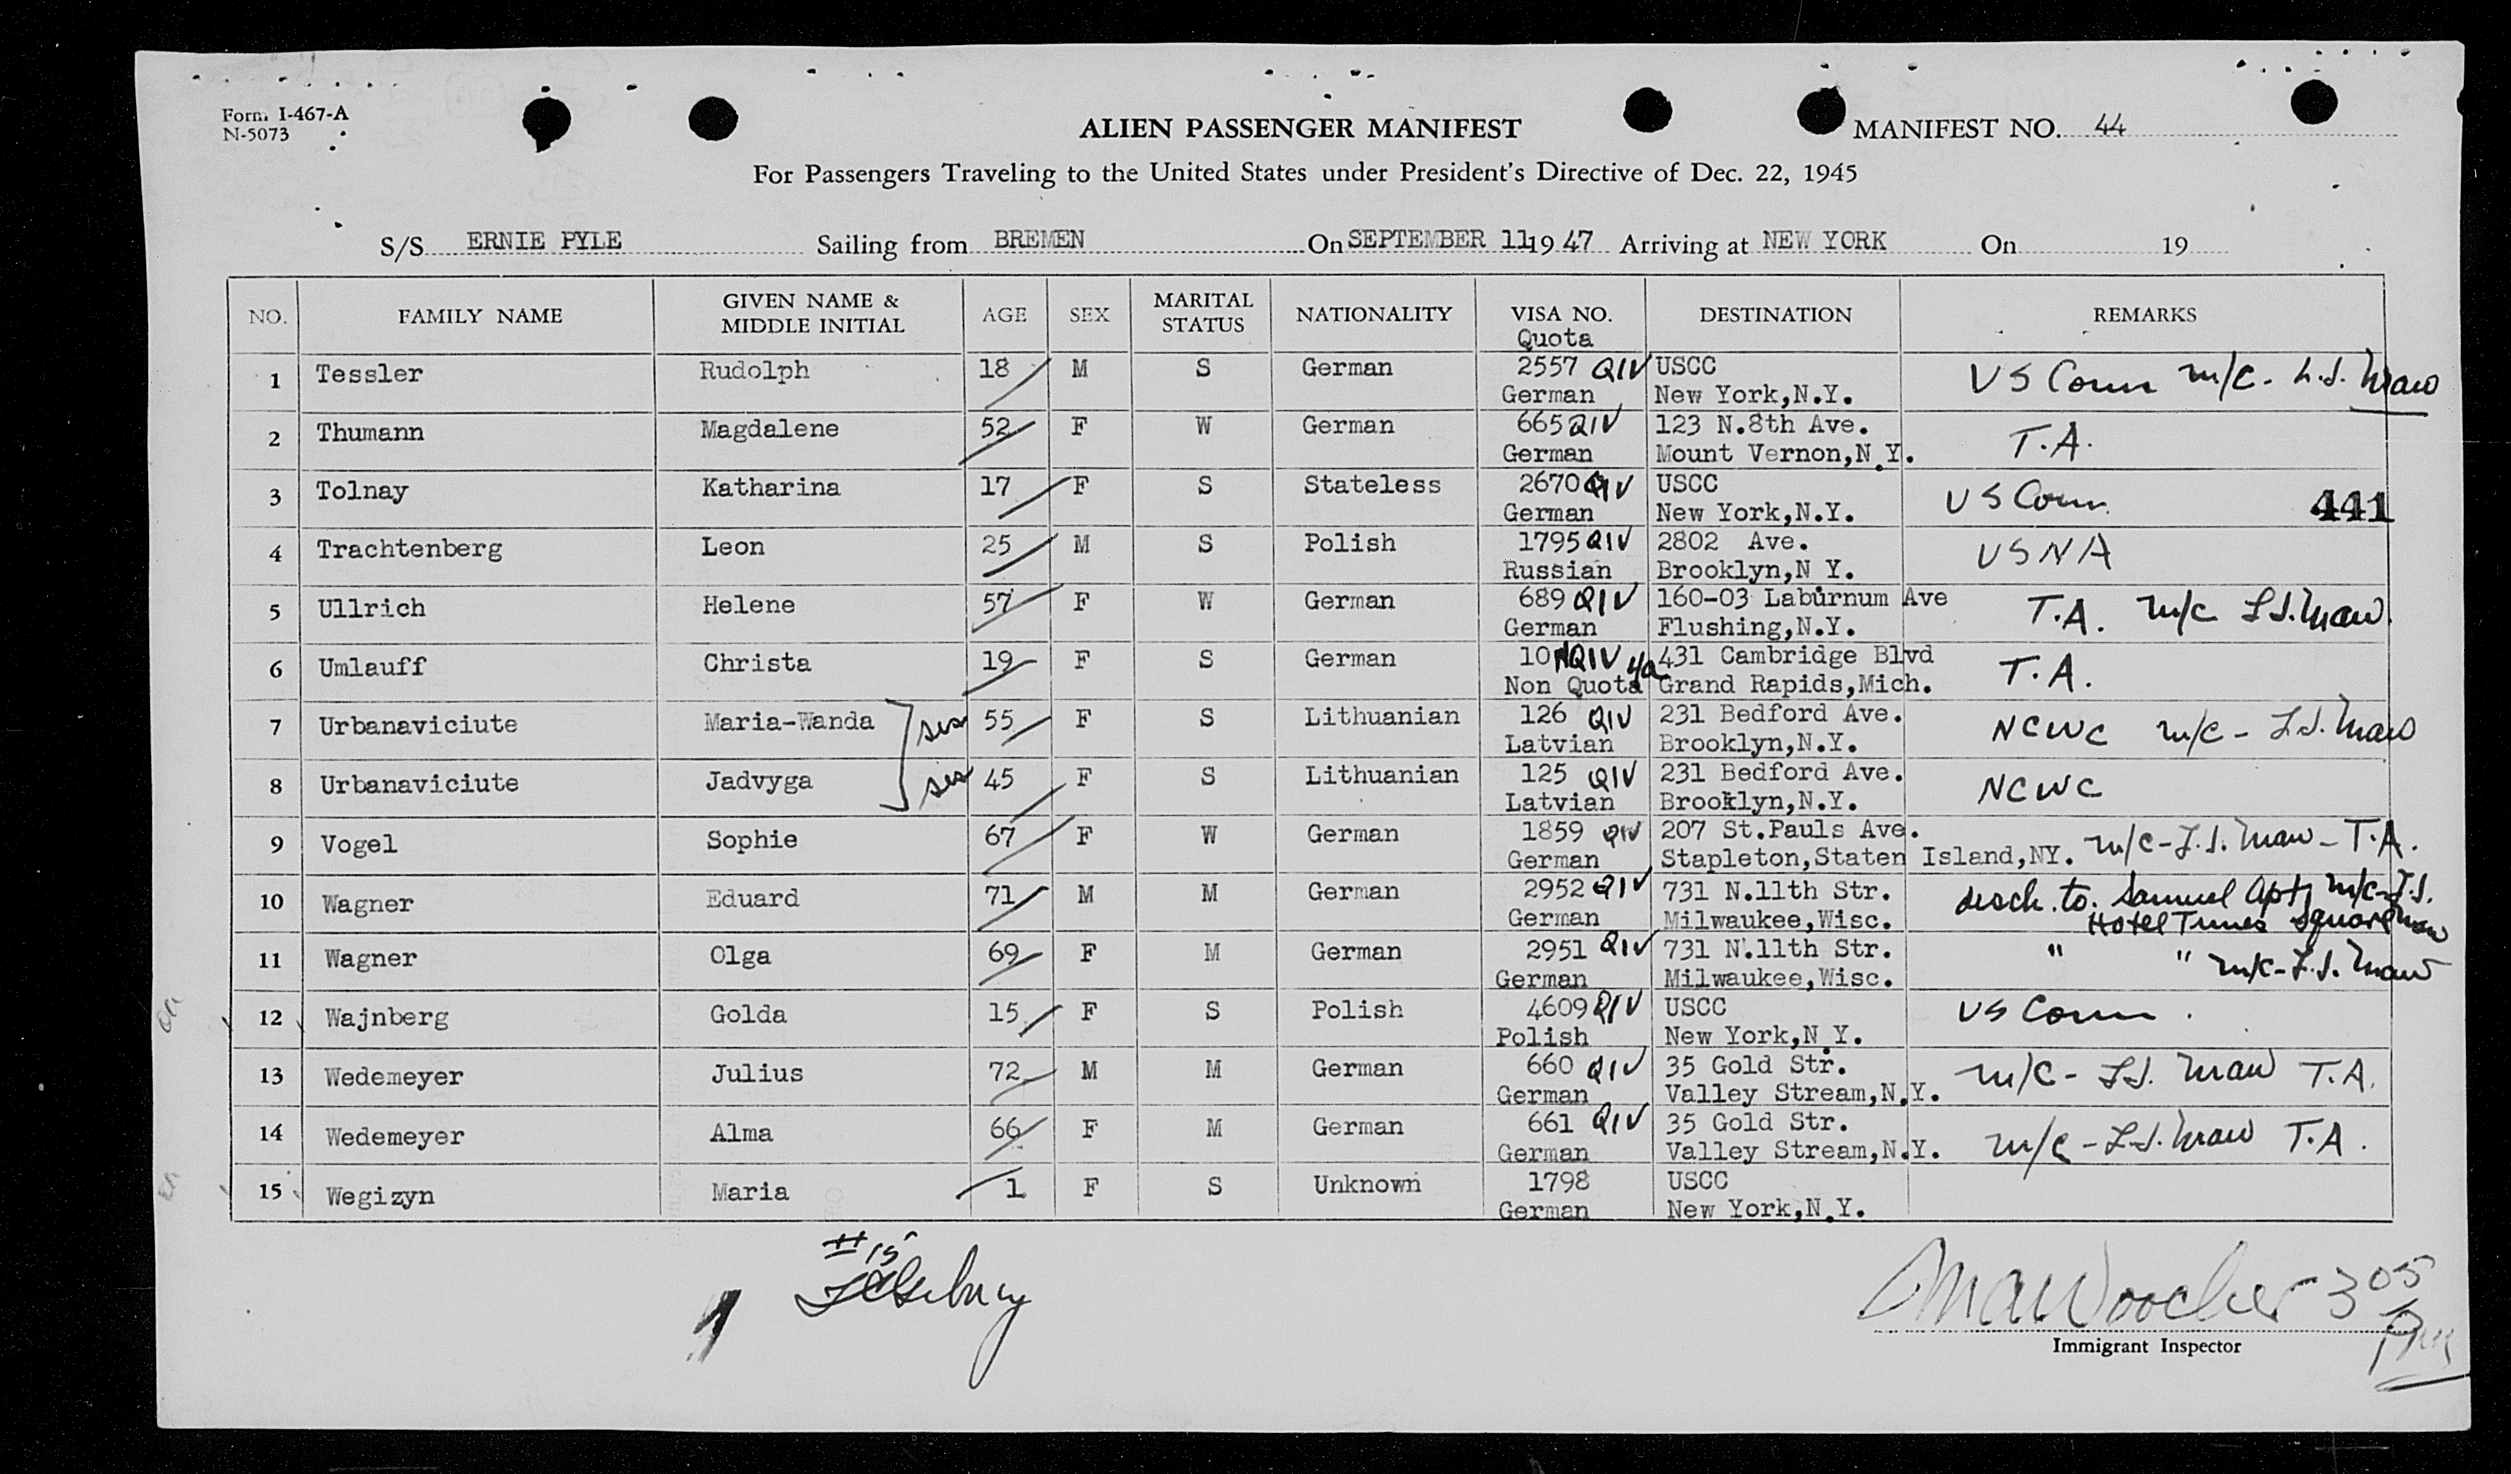 Form I-467-A
N-5073
ALIEN PASSENGER MANIFEST
MANIFEST NO. 44
For Passengers Traveling to the United States under President's Directive of Dec. 22, 1945
S/S ERNIE PYLE Sailing from BREMEN On SEPTEMBER 11 19 47 Arriving at NEW YORK On 19
NO. FAMILY NAME GIVEN NAME & MIDDLE INITIAL AGE SEX MARITAL STATUS NATIONALITY VISA NO. Quota DESTINATION REMARKS
1 Tessler Rudolph 18 M S German 2557 QIV USCC US Com m/c - L.J. Maw
German New York,N.Y.
2 Thumann Magdalene 52 F W German 665 QIV 123 N.8th Ave. T.A.
German Mount Vernon,N.Y.
3 Tolnay Katharina 17 F S Stateless 2670 QIV USCC US Com 441
German New York,N.Y.
4 Trachtenberg Leon 25 M S Polish 1795 QIV 2802 Ave. USNA
Russian Brooklyn,N Y.
5 Ullrich Helene 57 F W German 689 QIV 160-03 Laburnum Ave T.A. m/c L.J. Maw
German Flushing,N.Y.
6 Umlauff Christa 19 F S German 10 NQIV 4a 431 Cambridge Blvd T.A.
Non Quota Grand Rapids,Mich.
7 Urbanaviciute Maria-Wanda sis 55 F S Lithuanian 126 QIV 231 Bedford Ave. NCWC m/c - L.J. Maw
Latvian Brooklyn,N.Y.
8 Urbanaviciute Jadvyga sis 45 F S Lithuanian 125 QIV 231 Bedford Ave. NCWC
Latvian Brooklyn,N.Y.
9 Vogel Sophie 67 F W German 1859 QIV 207 St.Pauls Ave. m/c - L.J. Maw - T.A.
German Stapleton,Staten Island,NY.
10 Wagner Eduard 71 M M German 2952 QIV 731 N.11th Str. disch. to. Samuel Apt, m/c - L.J. Maw
German Milwaukee,Wisc. Hotel Times Square
11 Wagner Olga 69 F M German 2951 QIV 731 N.11th Str. " " m/c - L.J. Maw
German Milwaukee,Wisc.
12 Wajnberg Golda 15 F S Polish 4609 QIV USCC US Com
Polish New York,N.Y.
13 Wedemeyer Julius 72 M M German 660 QIV 35 Gold Str. m/c - L.J. Maw T.A.
German Valley Stream,N.Y.
14 Wedemeyer Alma 66 F M German 661 QIV 35 Gold Str. m/c - L.J. Maw T.A.
German Valley Stream,N.Y.
15 Wegizyn Maria 1 F S Unknown 1798 USCC
German New York,N.Y.
#15
305
Immigrant Inspector